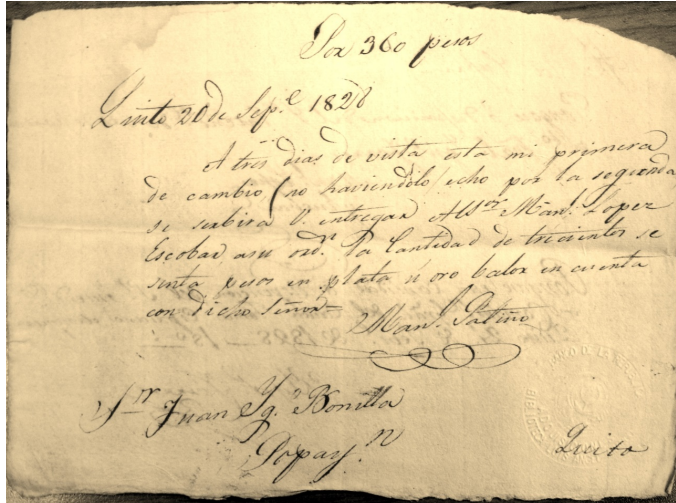 Por 360 pesos
Quito 20 de Sep.e 1828
A tres dias de vista esta mi primera
de cambio (no haviendolo echo por la segunda
se serbira V. entregar Al Sor Manl. Lopez
Escobar asu ordn. la Cantidad de trecientos se
senta pesos en plata ú oro balor en cuenta
con dicho Señor
Manl. Patiño
Sor Juan Ig.o Bonilla
Popayn.
Quito